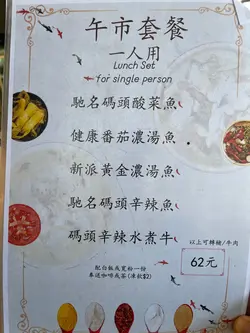 午市套餐
一人用
Lunch Set
for single person
馳名碼頭酸菜魚
健康番茄濃湯魚
新派黃金濃湯魚
馳名碼頭辛辣魚
碼頭辛辣水煮牛
以上可轉豬/牛肉
62元
配白飯或寬粉一份
奉送咖啡或茶(凍飲$2)